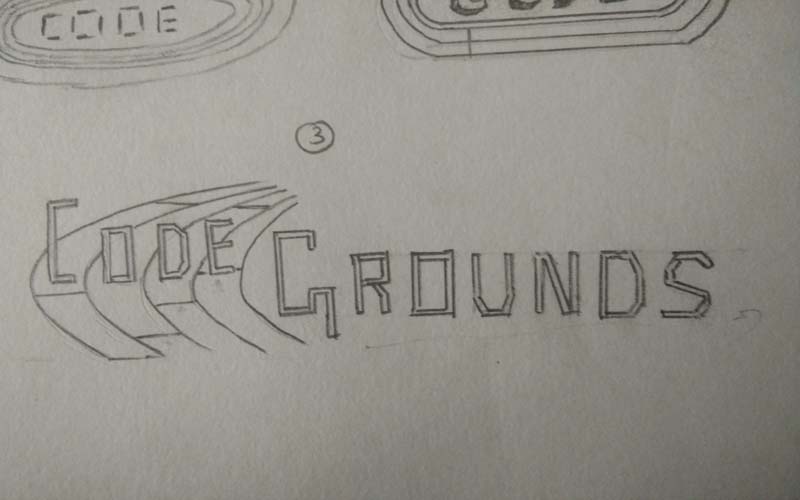 CODE
3
CODE GROUNDS